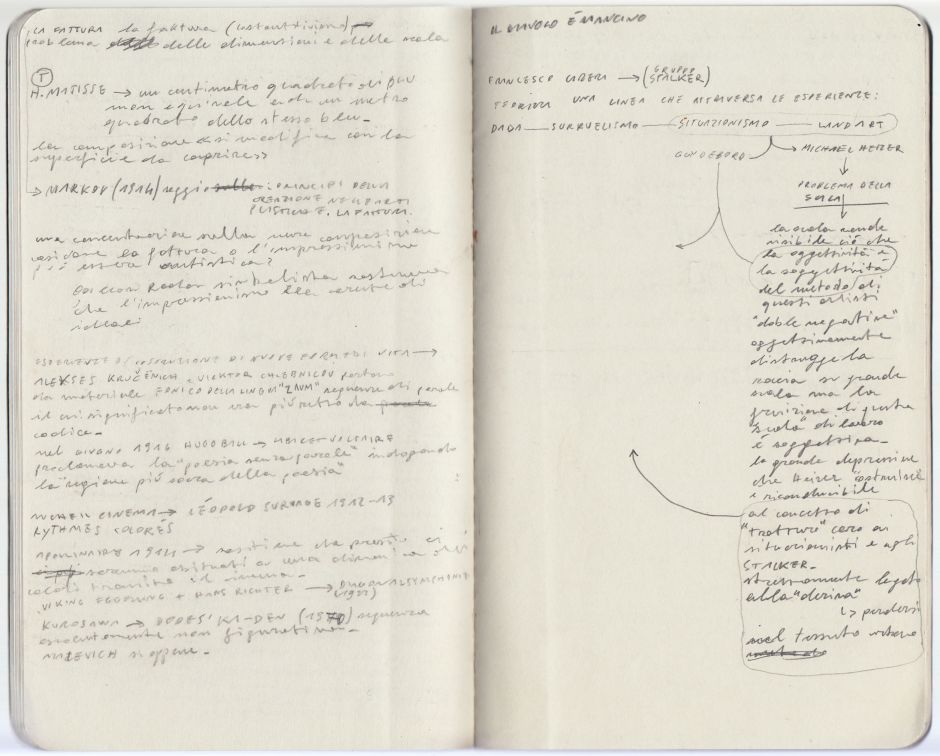 LA FATTURA la faktura (costruttivismo)
problema delle dimensioni e della scala
I
H. MATISSE → un centimetro quadrato di blu
non equivale ad un metro
quadrato dello stesso blu.
la composizione si modifica con la
superficie da coprire>>
MARKOV (1914) saggio : PRINCIPI DELLA
CREAZIONE NELLE ARTI
PLASTICHE. LA FATTURA.
una concentrazione sulla mera composizione
la fattura o l'impressionismo
può essere autistica?
simbolista sosteneva
che l'impressionismo di
ideali
ESPERIENZE DI COSTRUZIONE DI NUOVE FORME DI VITA →
ALEKSES KRUČËNICH e VIKTOR CHLEBNICOV partono
da materiale FONICO DELLA LINGUA "ZAUM" sequenze di parole
il cui significato non era più retto da
codice.
nel GIUGNO 1916 HUGO BALL → VOLTAIRE
proclamava la "poesia senza parole" inseguendo
la "regione più sacra della poesia"
CINEMA → LÉOPOLD SURVAGE 1912-13
RYTHMES COLORÉS
APOLLINAIRE 1914 → sostiene che presto ci
saremmo abituati a una dimensione del
colore tramite il cinema.
VIKING EGGELING + HANS RICHTER → DIAGONALSYMPHONIE
KUROSAWA → DODES'KA-DEN (1970) sequenza
assolutamente non figurativa.
MALEVICH
IL DIAVOLO È MANCINO
FRANCESCO CARERI → (GRUPPO
STALKER)
TEORIZZA UNA LINEA CHE ATTRAVERSA LE ESPERIENZE:
DADA — SURREALISMO — SITUAZIONISMO — LAND ART
GUY DEBORD
MICHAEL HEIZER
PROBLEMA DELLA
SCALA
la scala rende
visibile ciò che
la oggettività e
la soggettività
del metodo di
questi artisti
"doble negative"
oggettivamente
distrugge la
roccia su grande
scala ma la
fruizione di questa
"scala" di lavoro
è soggettiva.
la grande depressione
che Heizer "costruisce"
è riconducibile
al concetto di
caro ai
situazionisti e agli
STALKER.
strettamente legato
alla "deriva"
↳ perdersi
nel tessuto urbano